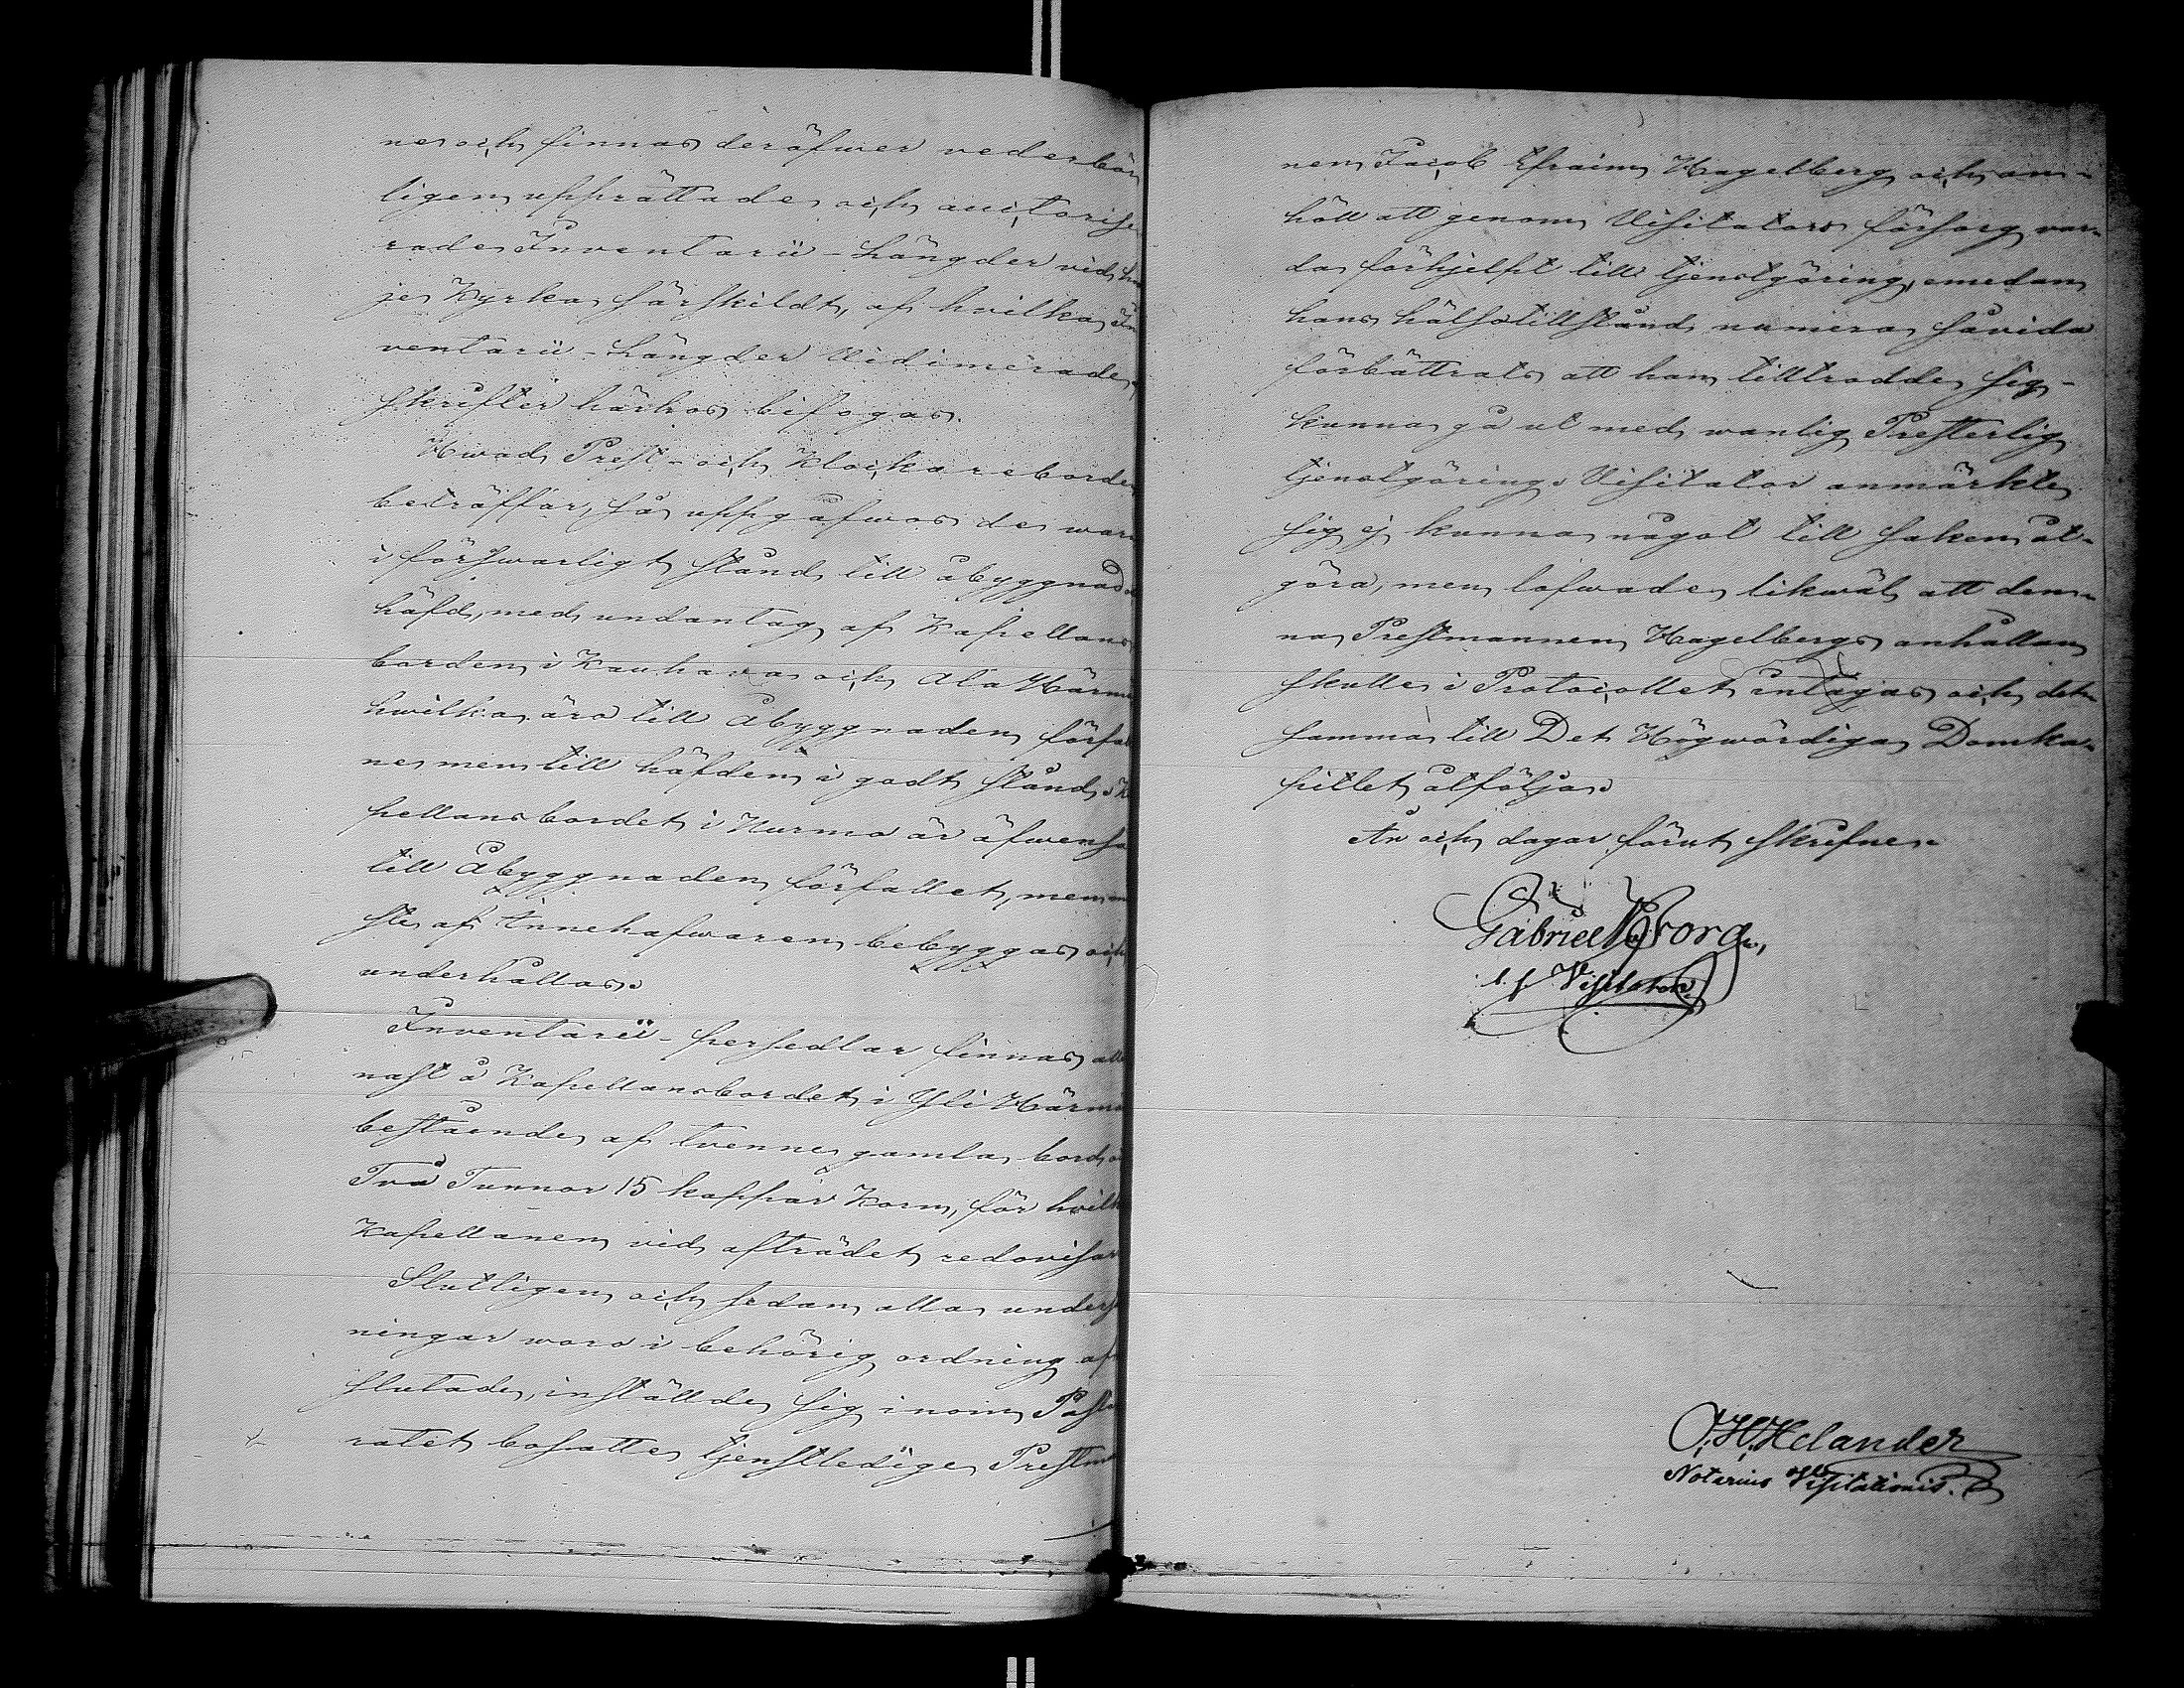 ne och finnas deröfwer vederbör
ligen upprättade och auctorise
rade Inventarii-Längder vid hw
je Kyrka särskildt, af hvilka In
ventarii-Längder Vidimerade
skrifter härhos bifogas.
Hwad Prest- och Klockareborde
beträffar, så uppgafwos de wara
i förswarligt stånd till åbyggnad o
häfd, med undantag af Kapellans
borden i Kauhava och Ala Härmä
hwilka äro till Åbyggnaden förfal
ne men till häfden i godt stånd. Ka
pellansbordet i Nurmo är äfwenså
till Åbyggnaden förfallet, men
ste af Innehafwaren bebyggas och
underhållas.
Inventarii-persedlar finnas alle
nast å Kapellansbordet i Yli Härmä
bestående af tvenne gamla bord o
Två Tunnor 15 kappar Korn, för hvilk
Kapellanen vid afträdet redovisar
Slutligen och sedan alla unders
ningar woro i behörig ordning af
slutade, inställde sig inom Pasto
ratet bosatte tjenstledige Prestma
nen Jacob Efraim Hagelberg och an-
höll att genom Visitators försorg var-
da förhjelpt till tjenstgöring, emedan
hans hälsotillstånd numera såvida
förbättrats att han tilltrodde sig
kunna gå ut med wanlig Presterlig
tjenstgöring. Visitator anmärkte
sig ej kunna något till saken åt-
göra, men lofwade likwäl att den-
na Prestmannen Hagelbergs anhållan
skulle i Protocollet intagas och det-
samma till Det Högwördiga Domka-
pitlet åtföljas.
År och dagar förut skrefne.
Gabriel Borg,
t. f. Visitator.
J. H. Helander
Notarius Visitationis.